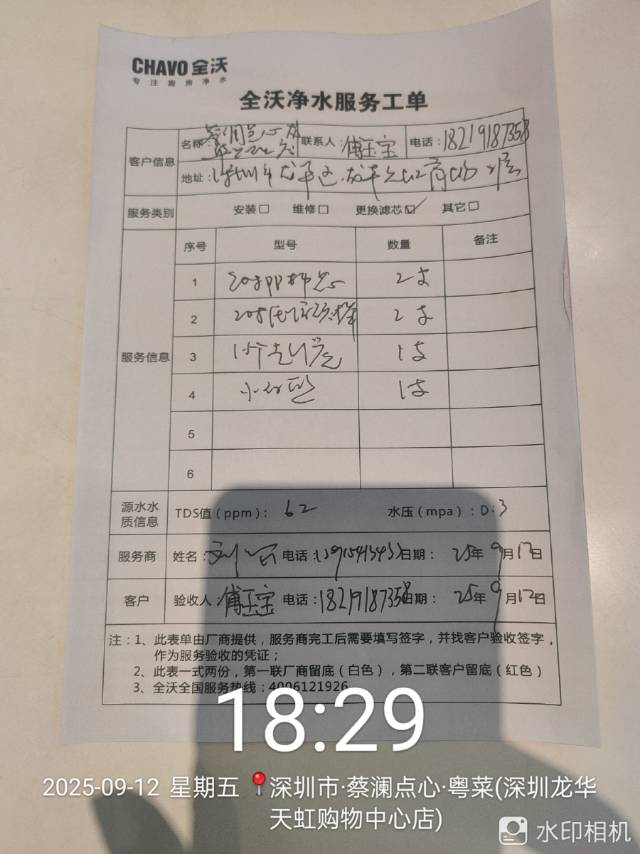 CHAVO 全沃
专注商用净水
全沃净水服务工单
客户信息 名称 蔡澜点心 联系人 傅玉宝 电话：18219187358
地址：深圳市龙华区 龙华天虹商场 2层
服务类别 安装□ 维修□ 更换滤芯☑ 其它□
服务信息 序号 型号 数量 备注
1 20寸PP棉 2支
2 20寸 2支
3 1支
4 1支
5
6
源水水质信息 TDS值（ppm）：62 水压（mpa）：0.3
服务商 姓名：刘 电话： 日期：25年9月12日
客户 验收人 傅玉宝 电话：18219187358 日期：25年9月12日
注：1、此表单由厂商提供，服务商完工后需要填写签字，并找客户验收签字，
作为服务验收的凭证；
2、此表一式两份，第一联厂商留底（白色），第二联客户留底（红色）
3、全沃全国服务热线：4006121926
18:29
2025-09-12 星期五 深圳市·蔡澜点心·粤菜(深圳龙华
天虹购物中心店)
水印相机